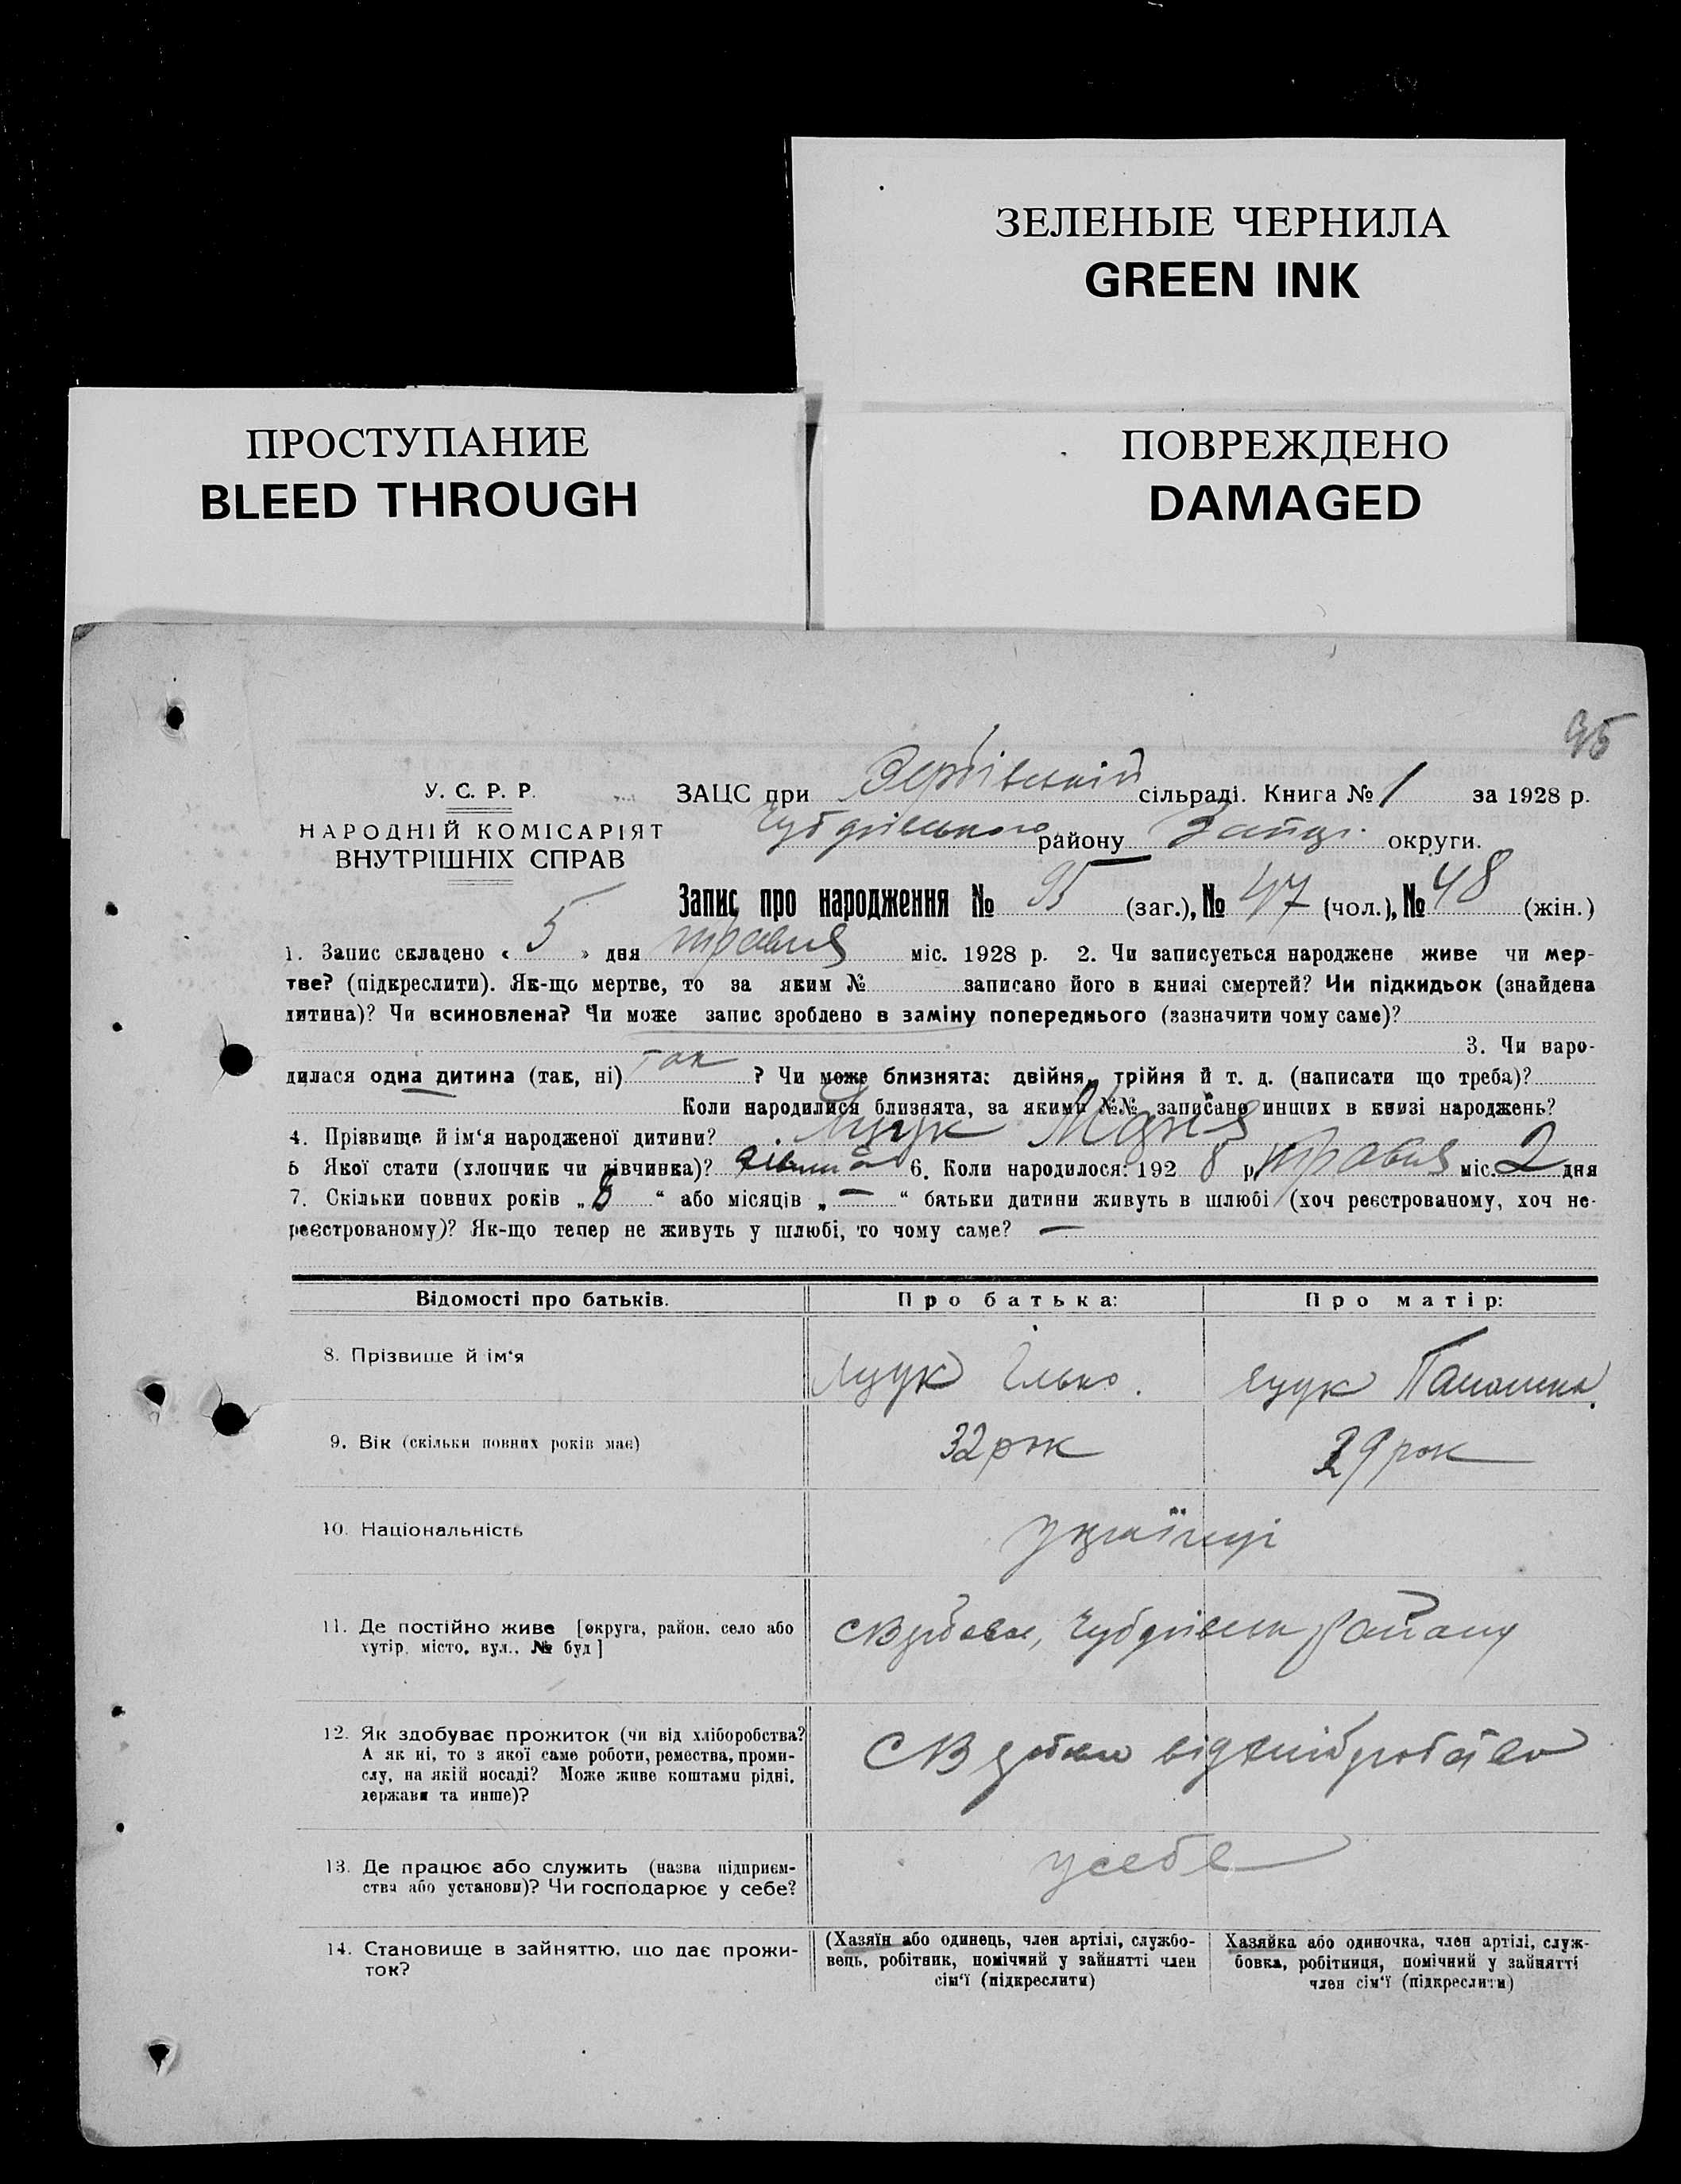 ЗЕЛЕНЫЕ ЧЕРНИЛА
GREEN INK
ПРОСТУПАНИЕ
BLEED THROUGH
ПОВРЕЖДЕНО
DAMAGED
95
У. С. Р. Р.
НАРОДНІЙ КОМІСАРІЯТ
ВНУТРІШНІХ СПРАВ
ЗАЦС при сільраді. Книга № 1 за 1928 р.
району округи.
Запис про народження № 95 (заг.), № 47 (чол.), № 48 (жін.)
1. Запис складено « 5 » дня травня міс. 1928 р. 2. Чи записується народжене живе чи мер-
тве? (підкреслити). Як-що мертве, то за яким № записано його в книзі смертей? Чи підкидьок (знайдена
дитина)? Чи всиновлена? Чи може запис зроблено в заміну попереднього (зазначити чому саме)?
3. Чи наро-
дилася одна дитина (так, ні) так ? Чи може близнята: двійня, трійня й т. д. (написати що треба)?
Коли народилися близнята, за якими №№ записано инших в книзі народжень?
4. Прізвище й ім‘я народженої дитини? Яцук Марія
5 Якої стати (хлопчик чи дівчинка)? 6. Коли народилося: 192 8 р. травня міс. 2 дня
7. Скільки повних років „ 8 “ або місяців „ — “ батьки дитини живуть в шлюбі (хоч реєстрованому, хоч не-
реєстрованому)? Як-що тепер не живуть у шлюбі, то чому саме? —
Відомості про батьків. Про батька: Про матір:
8. Прізвище й ім‘я Яцук Ілько. Яцук
9. Вік (скільки повних років має) 32 рок 29 рок
10. Національність українці
11. Де постійно живе [округа, район, село або
хутір, місто, вул., № буд] району
12. Як здобуває прожиток (чи від хліборобства?
А як ні, то з якої саме роботи, ремества, проми-
слу, на якій посаді? Може живе коштами рідні,
держави та инше)?
13. Де працює або служить (назва підприєм-
ства або установи)? Чи господарює у себе? у себе
14. Становище в зайняттю, що дає прожи-
ток?
(Хазяїн або одинець, член артілі, службо-
вець, робітник, помічний у зайнятті член
сім‘ї (підкреслити)
Хазяйка або одиночка, член артілі, служ-
бовка, робітниця, помічний у зайнятті
член сім‘ї (підкреслити)